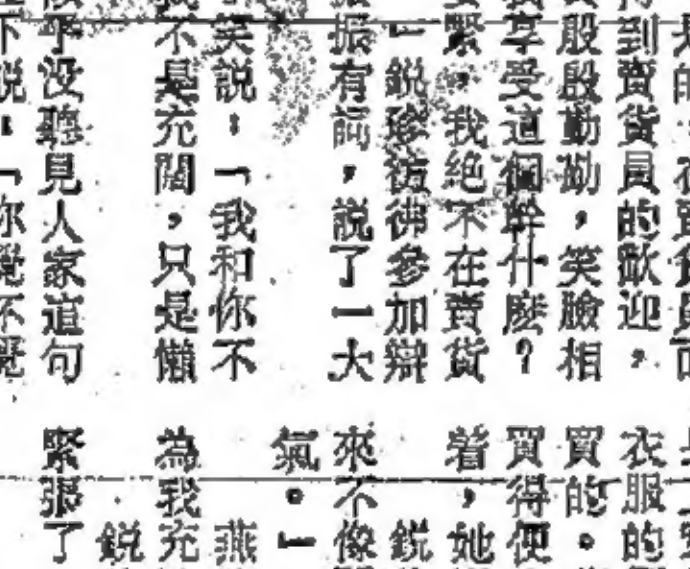 的,在賣貨員面
到賣貨員的歡迎,
殷殷勤勤,笑臉相
我享受這個幹什麼?
要緊,我絕不在賣貨
」銳珍彷彿參加辯
振有詞,說了一大
笑說:「我和你不
我不是充闊,只是懶
似乎沒聽見人家道句
下說:「你覺不覺
衣服的
買的。
買得便
着,她
銳
來不像
氣。」
燕
為我充
銳
緊張了